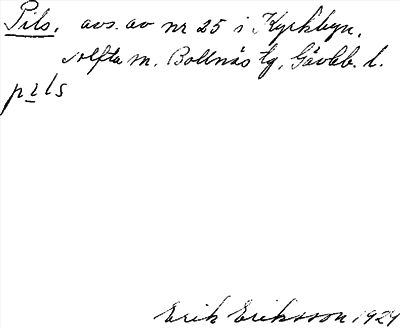 Pils. avs. av nr 25 i Kyrkbyn,
Rolfta m. Bollnäs tg, Gävleb. l.
pils
Erik Eriksson 1924